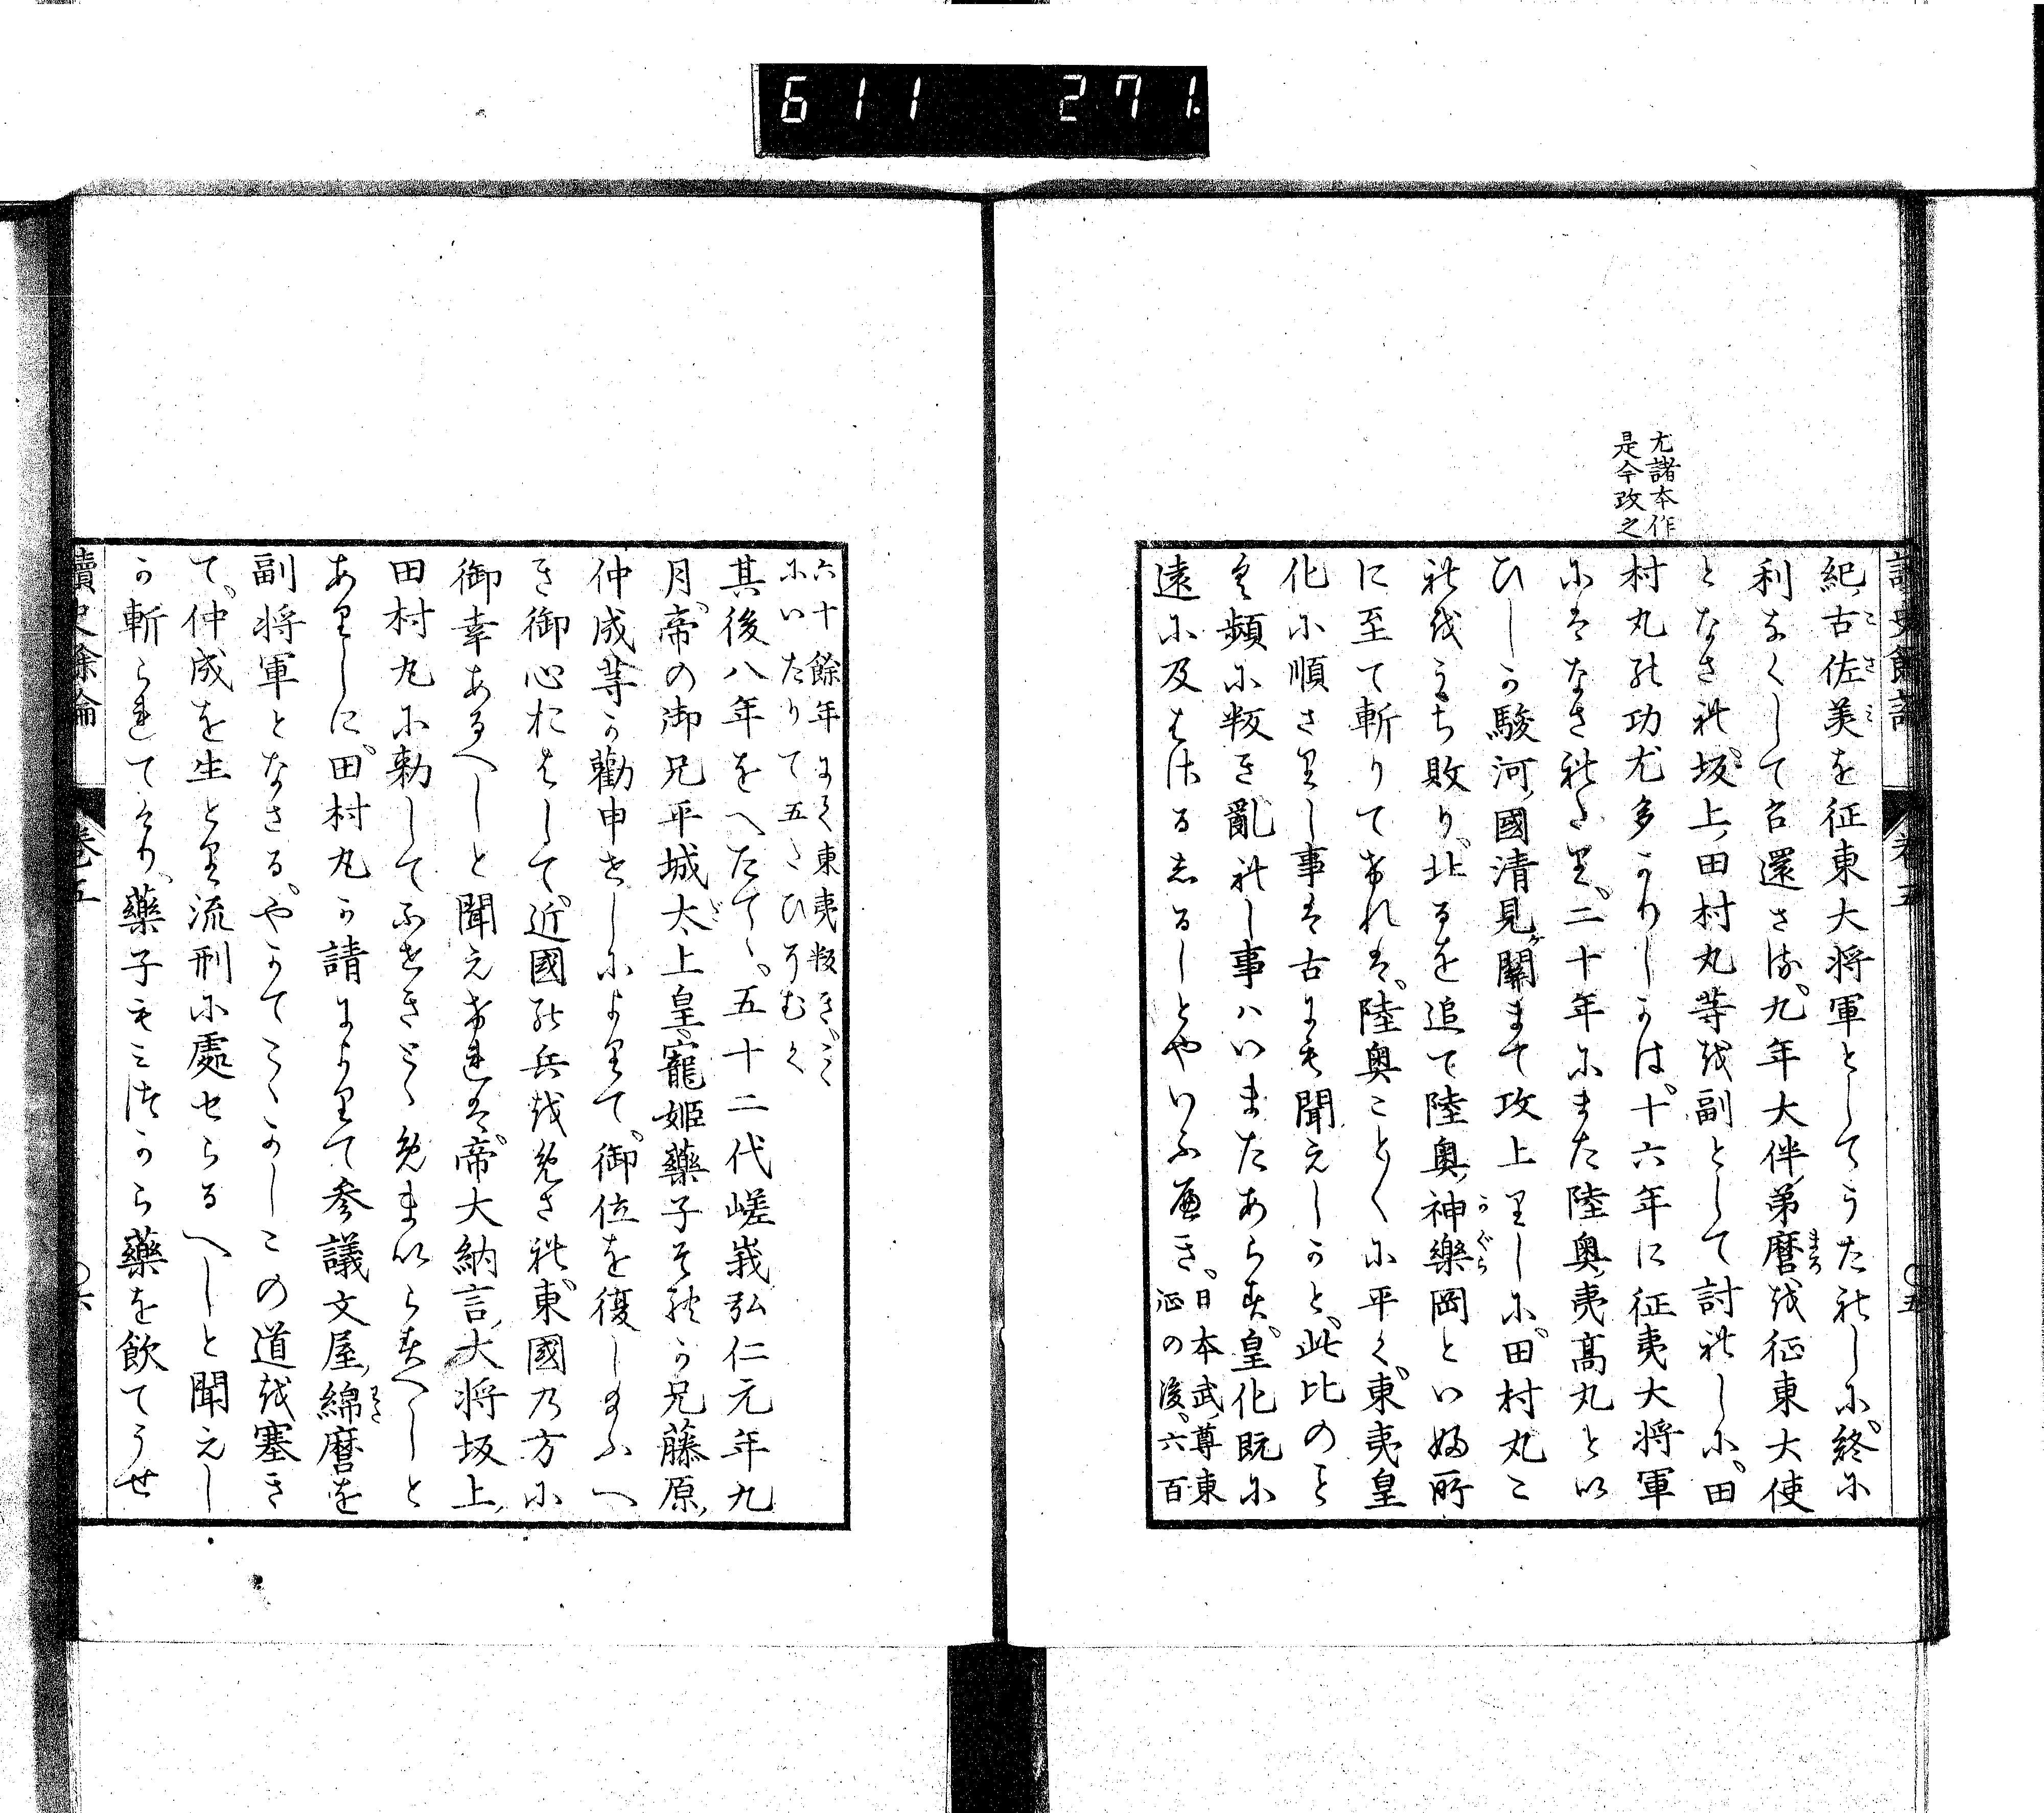 611 271.
尤諸本作
是今改之
紀、古佐美を征東大将軍としてうたれしに、終に
利なくして召還さる。九年大伴、弟麿を征東大使
となされ、坂上、田村丸等を副として討れしに、田
村丸の功尤多かりしかは、十六年に征夷大将軍
になされたり、二十年にまた陸奥、夷高丸とい
ひしか駿河、國清見關まて攻上りしに、田村丸こ
れをうち敗り、北るを追て陸奥、神樂岡といふ所
に至て斬りてけれは、陸奥こと〱く平く、東夷皇
化に順さりし事は古にも聞えしかと、此比のこと
く頻に叛き亂れし事ハいまたあらす、皇化既に
遠に及はさるしるしとやいふへき、日本武、尊東
征の後、六百
六十餘年にく東夷叛き、こゝ
にいたりて五たひそむく
其後八年をへたてゝ、五十二代嵯峩弘仁元年九
月、帝の御兄平城太上皇、寵姫藥子それか兄藤原、
仲成等か勸申せしによりて、御位を復し給ふへ
き御心おはして、近國の兵をめされ、東國の方に
御幸あるへしと聞えけれは、帝大納言、大将坂上、
田村丸に勅してふせきとゝめまいらすへしと
ありしに、田村丸か請によりて参議文屋、綿麿を
副将軍となさる、やかてこゝかしこの道を塞き
て、仲成を生とり流刑に處せらるへしと聞えし
か斬られてけり、藥子もみつから藥を飲てうせ
讀史餘論 卷五 〇五
讀史餘論 卷五 〇六